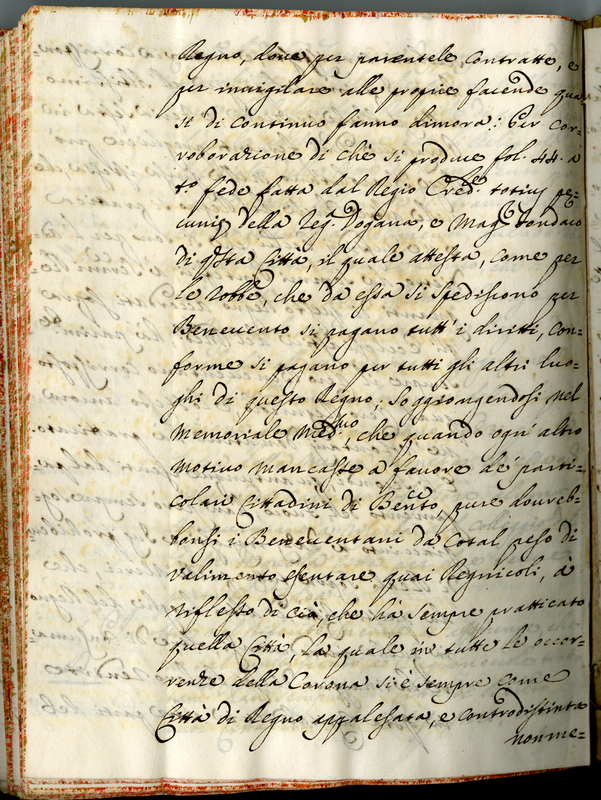 Regno, dove per parentele contratte, e
per invigilare alle proprie facende qua
si di continuo fanno dimora: Per cor=
roborazione di chè si produce fol. 44. a
t.º fede fatta dal Regio Cred.re totius pe=
cuniæ della Reg. Dogana, e Mag. fondaco
di q.sta Città, il quale attesta, come per
le robbe, che da essa si spediscono per
Benevento si pagano tutt' i diritti, con=
forme si pagano per tutti gli altri luo=
ghi di questo Regno; Soggiongendosi nel
Memoriale Med.mo, che quando ogn' altro
motivo mancasse a favore de' parti=
colari Cittadini di Ben.to, pure dovreb=
bonsi i Beneventani da cotal peso di
valimento esentare quai Regnicoli, à
riflesso di ciò, che hà sempre pratticato
quella Città, la quale in tutte le occor=
renze della Corona si è sempre come
Città di Regno appalesata, e controdistinta
non me=